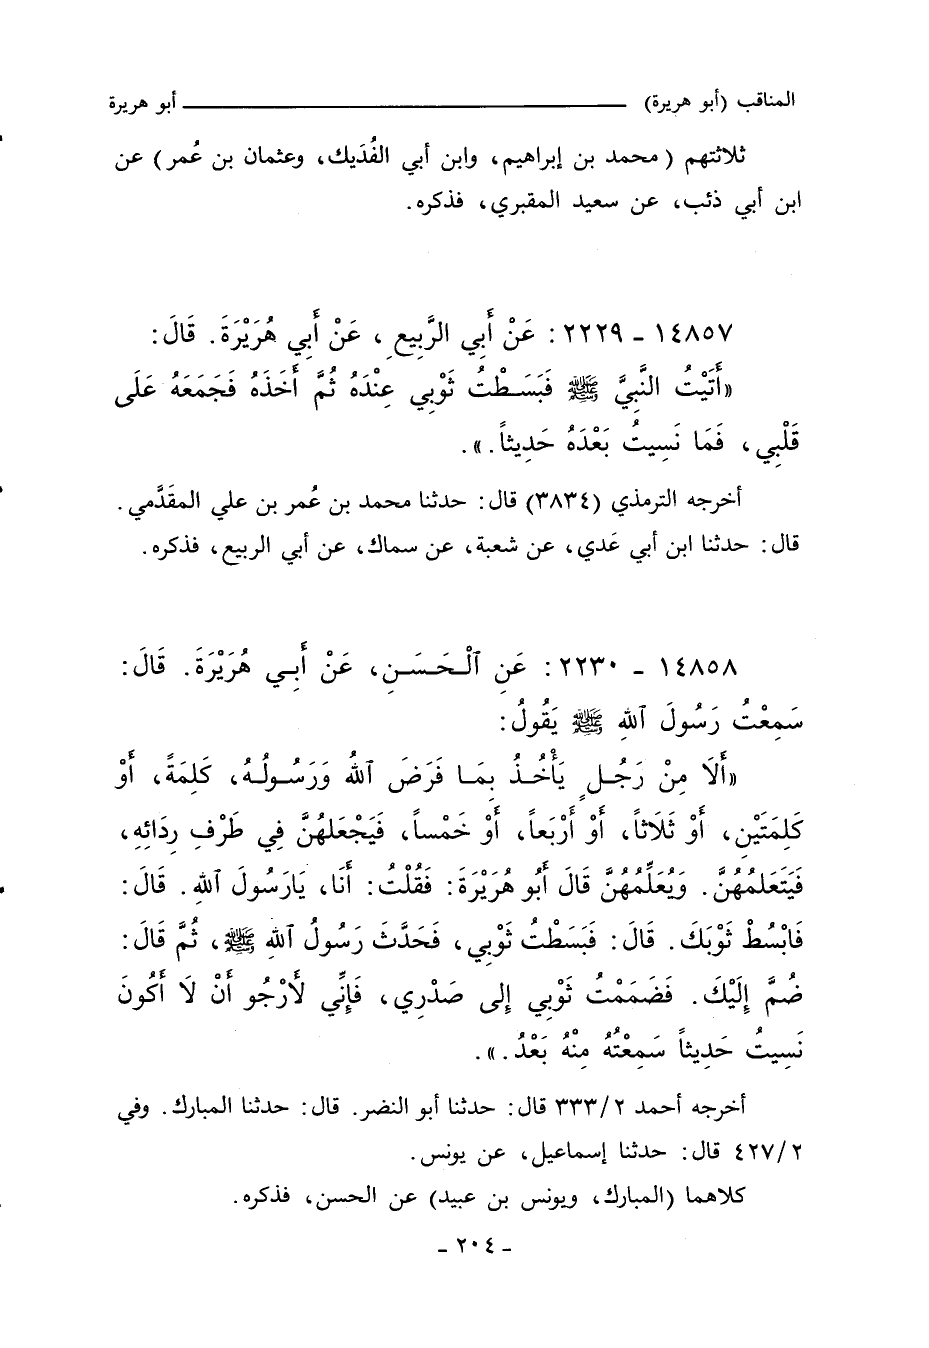 المناقب (أبو هريرة) ــــــــــــــــــــ أبو هريرة
ثلاثتهم ( محمد بن إبراهيم، وابن أبي الفُدَيك، وعثمان بن عُمر) عن
ابن أبي ذئب، عن سعيد المقبري، فذكره.
١٤٨٥٧ - ٢٢٢٩ : عَنْ أَبِي الرَّبِيعِ ، عَنْ أَبِي هُرَيْرَةَ. قَالَ:
«أَتَيْتُ النَّبِيَّ ﷺ فَبَسَطْتُ ثَوْبِي عِنْدَهُ ثُمَّ أَخَذَهُ فَجَمَعَهُ عَلَى
قَلْبِي، فَمَا نَسِيتُ بَعْدَهُ حَدِيثاً.».
أخرجه الترمذي (٣٨٣٤) قال: حدثنا محمد بن عُمر بن علي المقَدَّمي.
قال: حدثنا ابن أبي عَدي، عن شعبة، عن سماك، عن أبي الربيع، فذكره.
١٤٨٥٨ - ٢٢٣٠ : عَنِ ٱلْحَسَنِ، عَنْ أَبِي هُرَيْرَةَ. قَالَ:
سَمِعْتُ رَسُولَ ٱللهِ ﷺ يَقُولُ:
«أَلَا مِنْ رَجُلٍ يَأْخُذُ بِمَا فَرَضَ ٱللهُ وَرَسُولُهُ، كَلِمَةً، أَوْ
كَلِمَتَيْنِ، أَوْ ثَلَاثاً، أَوْ أَرْبَعاً، أَوْ خَمْساً، فَيَجْعَلهُنَّ فِي طَرْفِ رِدَائِهِ،
فَيَتَعَلمُهُنَّ. وَيُعَلِّمُهُنَّ قَالَ أَبُو هُرَيْرَةَ: فَقُلْتُ: أَنَا، يَارَسُولَ ٱللهِ. قَالَ:
فَابْسُطْ ثَوْبَكَ. قَالَ: فَبَسَطْتُ ثَوْبِي، فَحَدَّثَ رَسُولُ ٱللهِ ﷺ، ثُمَّ قَالَ:
ضُمَّ إِلَيْكَ. فَضَمَمْتُ ثَوْبِي إِلى صَدْرِي، فَإِنِّي لَأَرْجُو أَنْ لَا أَكُونَ
نَسِيتُ حَدِيثاً سَمِعْتُهُ مِنْهُ بَعْدُ.».
أخرجه أحمد ٣٣٣/٢ قال: حدثنا أبو النضر. قال: حدثنا المبارك. وفي
٤٢٧/٢ قال: حدثنا إسماعيل، عن يونس.
كلاهما (المبارك، ويونس بن عبيد) عن الحسن، فذكره.
- ٢٠٤ -